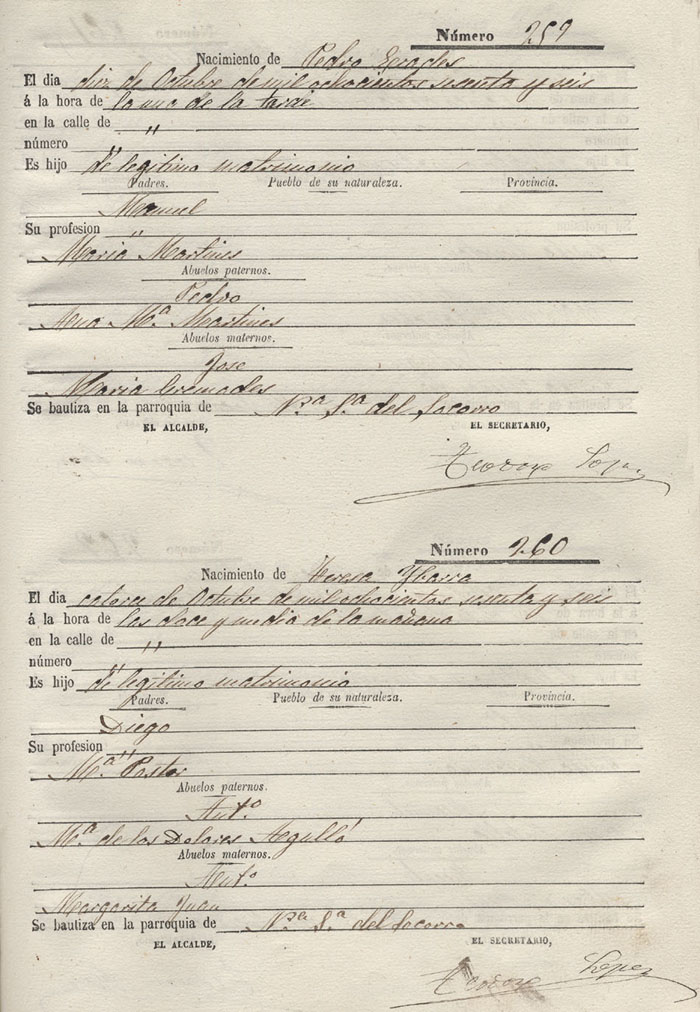 Número 259
Nacimiento de Pedro
El dia diez de Octubre de mil ochocientos sesenta y seis
á la hora de la una de la tarde
en la calle de "
número "
Es hijo de legitimo matrimonio
Padres. Pueblo de su naturaleza. Provincia.
Manuel
Su profesion "
Maria Martines
Abuelos paternos.
Pedro
Ana Mª Martines
Abuelos maternos.
Jose
Maria Cremades
Se bautiza en la parroquia de Nra Sª del Socorro
EL ALCALDE, EL SECRETARIO,
Teodoro Lopez
Número 260
Nacimiento de Teresa Ybarra
El dia catorce de Octubre de mil ochocientos sesenta y seis
á la hora de las doce y media de la mañana
en la calle de "
número "
Es hijo de legitimo matrimonio
Padres. Pueblo de su naturaleza. Provincia.
Diego
Su profesion "
Mª Pastor
Abuelos paternos.
Antº
Mª de los Dolores Agulló
Abuelos maternos.
Antº
Margarita Juan
Se bautiza en la parroquia de Nra Sª del Socorro
EL ALCALDE, EL SECRETARIO,
Teodoro Lopez